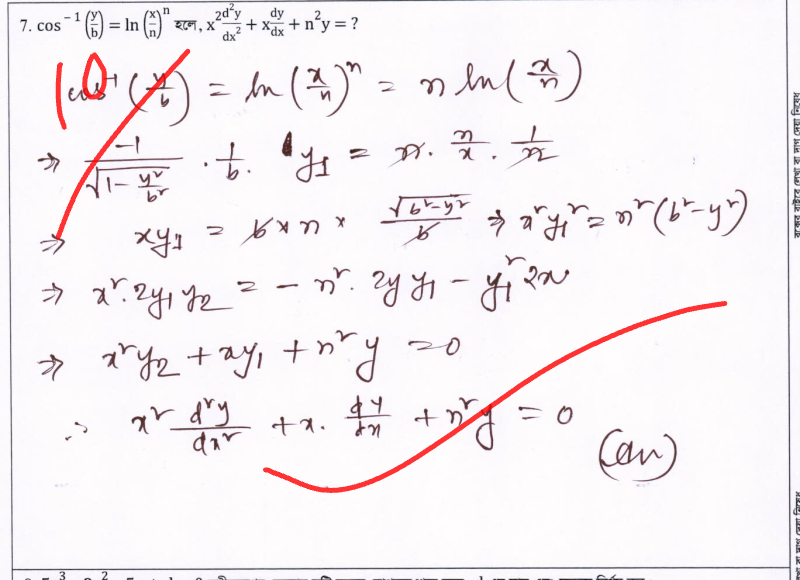 7. cos⁻¹(y/b) = ln(x/n)ⁿ হলে, x² d²y/dx² + x dy/dx + n²y = ?
10
cos⁻¹(y/b) = ln(x/n)ⁿ = n ln(x/n)
⇒ -1/√(1 - y²/b²) · 1/b · y₁ = n · n/x · 1/n
⇒ xy₁ = b × n × √(b²-y²)/b ⇒ x²y₁² = n²(b²-y²)
⇒ x²·2y₁y₂ = - n²· 2yy₁ - y₁² 2x
⇒ x²y₂ + xy₁ + n²y = 0
∴ x² d²y/dx² + x· dy/dx + n²y = 0
(An)